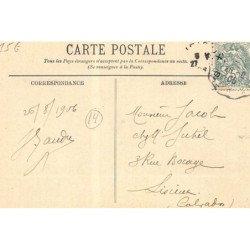 15 €
CARTE POSTALE
Tous les Pays étrangers n'acceptent pas la Correspondance au recto.
(Se renseigner à la Poste).
CORRESPONDANCE
ADRESSE
26/8/1906
14
Monsieur Jacob
chez
3 Rue Bocage
Lisieux
(Calvados)